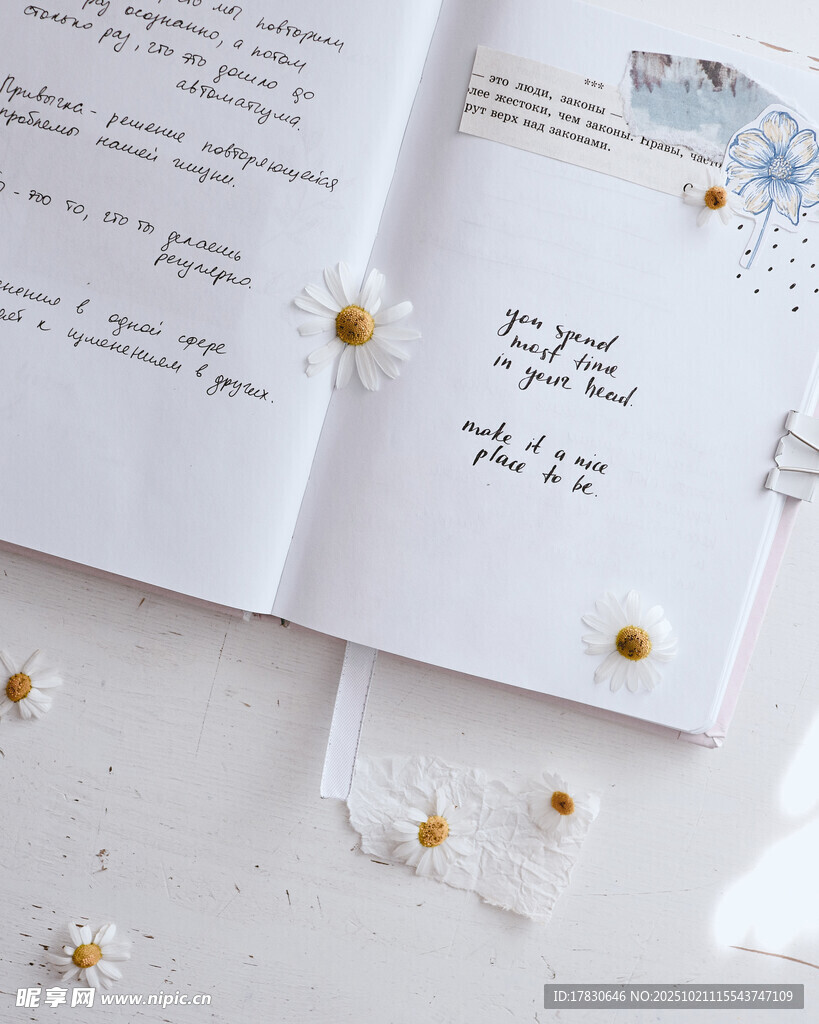 что мы повторили
раз осознанно, а потом
столько раз, что это дошло до
автоматизма.
Привычка - решение повторяющейся
проблемы нашей жизни.
- это то, что ты делаешь
регулярно.
в одной сфере
к изменениям в других.
***
— это люди, законы —
лее жестоки, чем законы. Нравы, часто
рут верх над законами.
you spend
most time
in your head.
make it a nice
place to be.
昵享网 www.nipic.cn
ID:17830646 NO:20251021115543747109